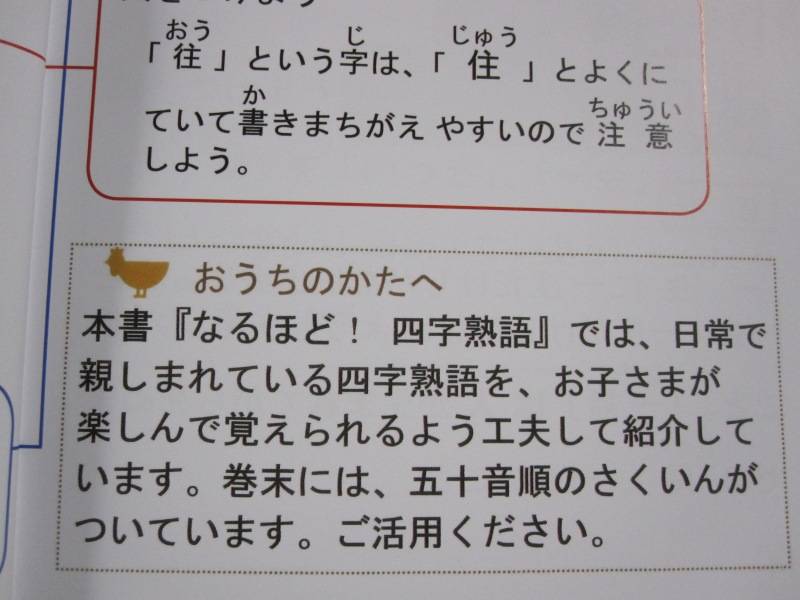 「往」という字は、「住」とよくに
ていて書きまちがえ やすいので 注意
しよう。
おうちのかたへ
本書『なるほど！ 四字熟語』では、日常で
親しまれている四字熟語を、お子さまが
楽しんで覚えられるよう工夫して紹介して
います。巻末には、五十音順のさくいんが
ついています。ご活用ください。